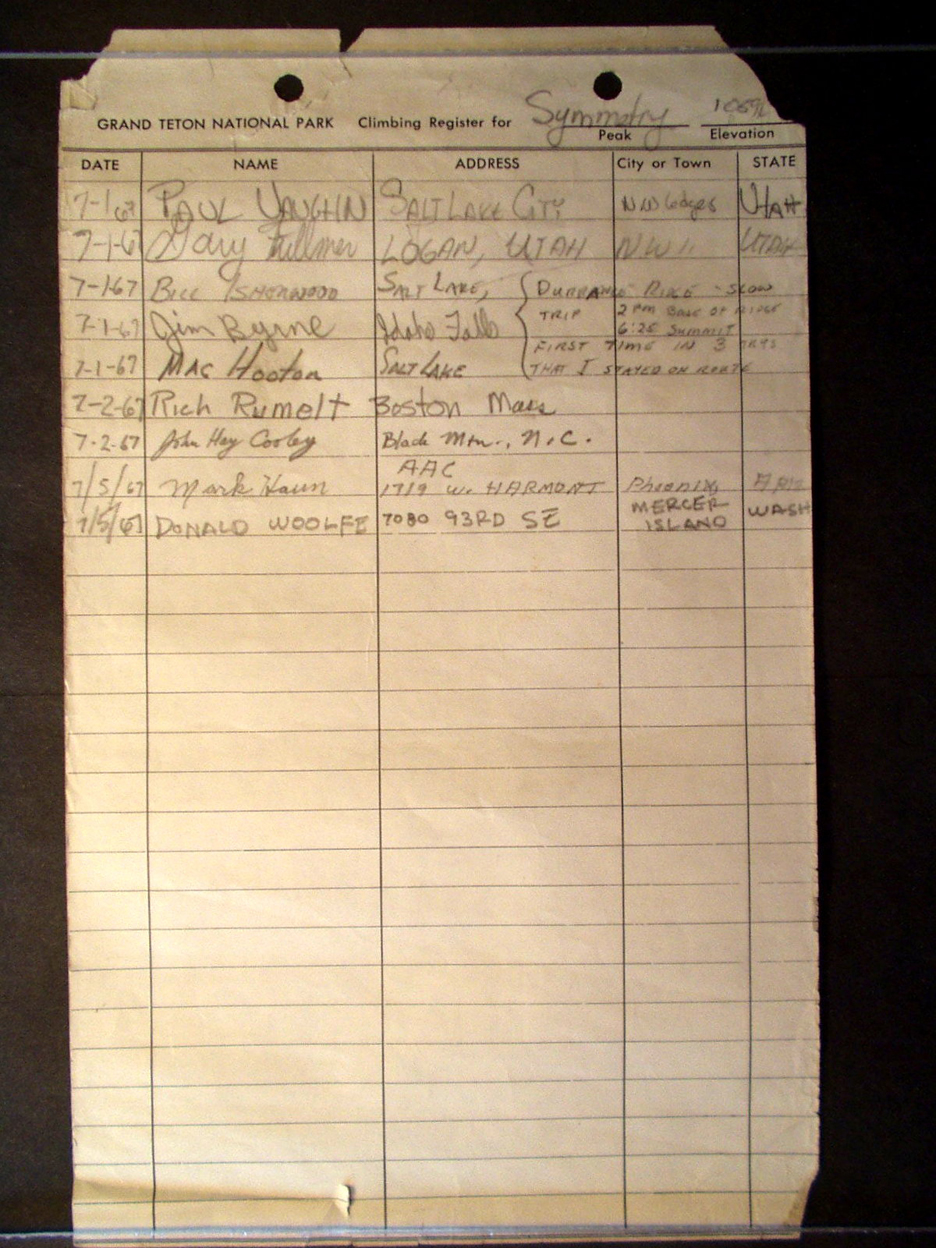 Symmetry
GRAND TETON NATIONAL PARK Climbing Register for Peak Elevation
DATE NAME ADDRESS City or Town STATE
7-1-67 PAUL VAUGHN SALT LAKE CITY NW Ledges UTAH
7-1-67 Gary Fullmer LOGAN, UTAH NW 11 UTAH
7-1-67 BILL ISHERWOOD SALT LAKE, { DURRANCE RIDGE - SLOW
7-1-67 Jim Byrne Idaho Falls TRIP 2 PM BASE OF RIDGE
6:25 SUMMIT
FIRST TIME IN 3 TRYS
7-1-67 MAC Hooton SALT LAKE THAT I STAYED ON ROUTE
7-2-67 Rich Rumelt Boston Mass
7-2-67 John Hey Cooley Black Mtn., N.C.
AAC
7/5/67 Mark Haun 1719 W. HARMONT Phoenix, ARIZ
7/5/67 DONALD WOOLFE 7080 93RD SE MERCER ISLAND WASH